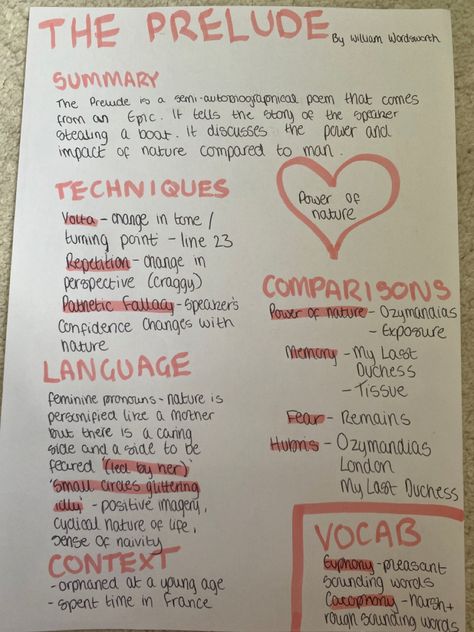 THE PRELUDE
By William Wordsworth
SUMMARY
The Prelude is a semi-autobiographical poem that comes
from an Epic. It tells the story of the speaker
stealing a boat. It discusses the power and
impact of nature compared to man.
TECHNIQUES
Volta - change in tone /
turning point - line 23
Repetition - change in
perspective (craggy)
Pathetic Fallacy - speaker's
confidence changes with
nature
Power of
nature
LANGUAGE
feminine pronouns - nature is
personified like a mother
but there is a caring
side and a side to be
feared '(led by her)'
'Small circles glittering
idly' - positive imagery,
cyclical nature of life,
sense of naivity
CONTEXT
- orphaned at a young age
- spent time in France
COMPARISONS
Power of nature - Ozymandias
- Exposure
Memory - My Last
Duchess
- Tissue
Fear - Remains
Hubris - Ozymandias
London
My Last Duchess
VOCAB
Euphony - pleasant
sounding words
Cacophony - harsh +
rough sounding words